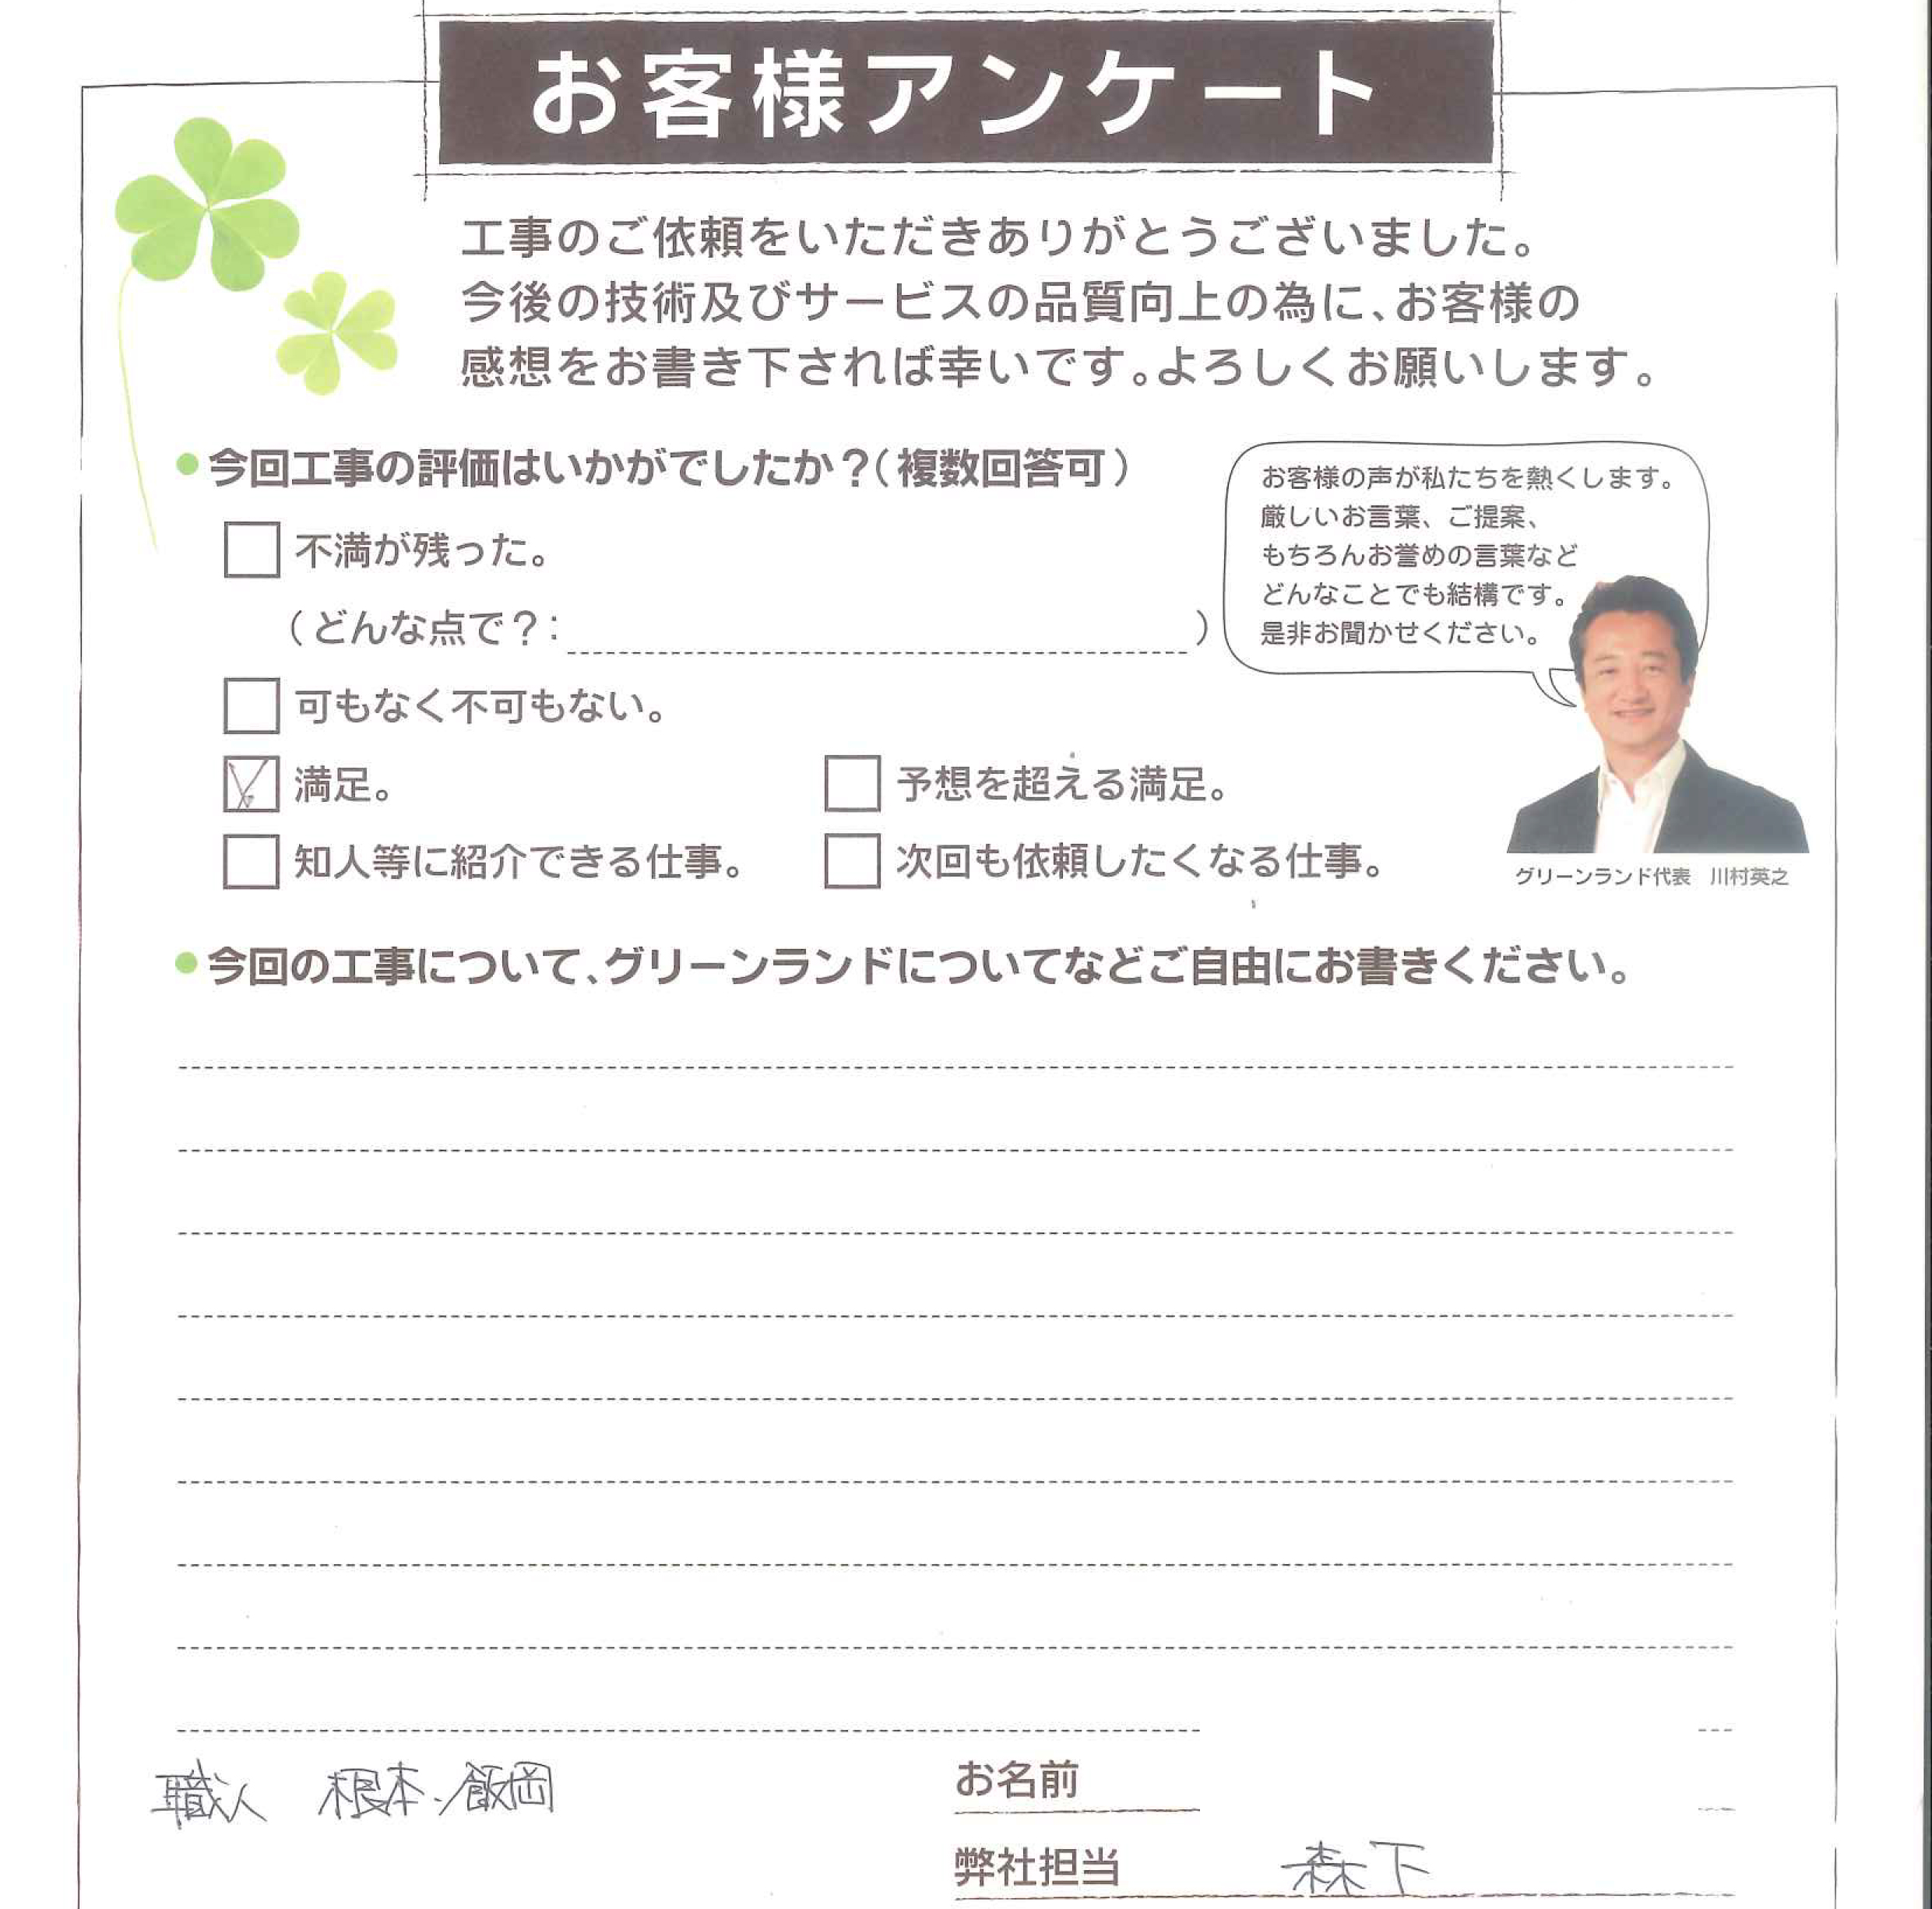 お客様アンケート
工事のご依頼をいただきありがとうございました。
今後の技術及びサービスの品質向上の為に、お客様の
感想をお書き下されば幸いです。よろしくお願いします。
●今回工事の評価はいかがでしたか？（複数回答可）
不満が残った。
（どんな点で？：　）
可もなく不可もない。
満足。
予想を超える満足。
知人等に紹介できる仕事。
次回も依頼したくなる仕事。
お客様の声が私たちを熱くします。
厳しいお言葉、ご提案、
もちろんお誉めの言葉など
どんなことでも結構です。
是非お聞かせください。
グリーンランド代表　川村英之
●今回の工事について、グリーンランドについてなどご自由にお書きください。
職人　根本、飯岡
お名前
弊社担当　森下